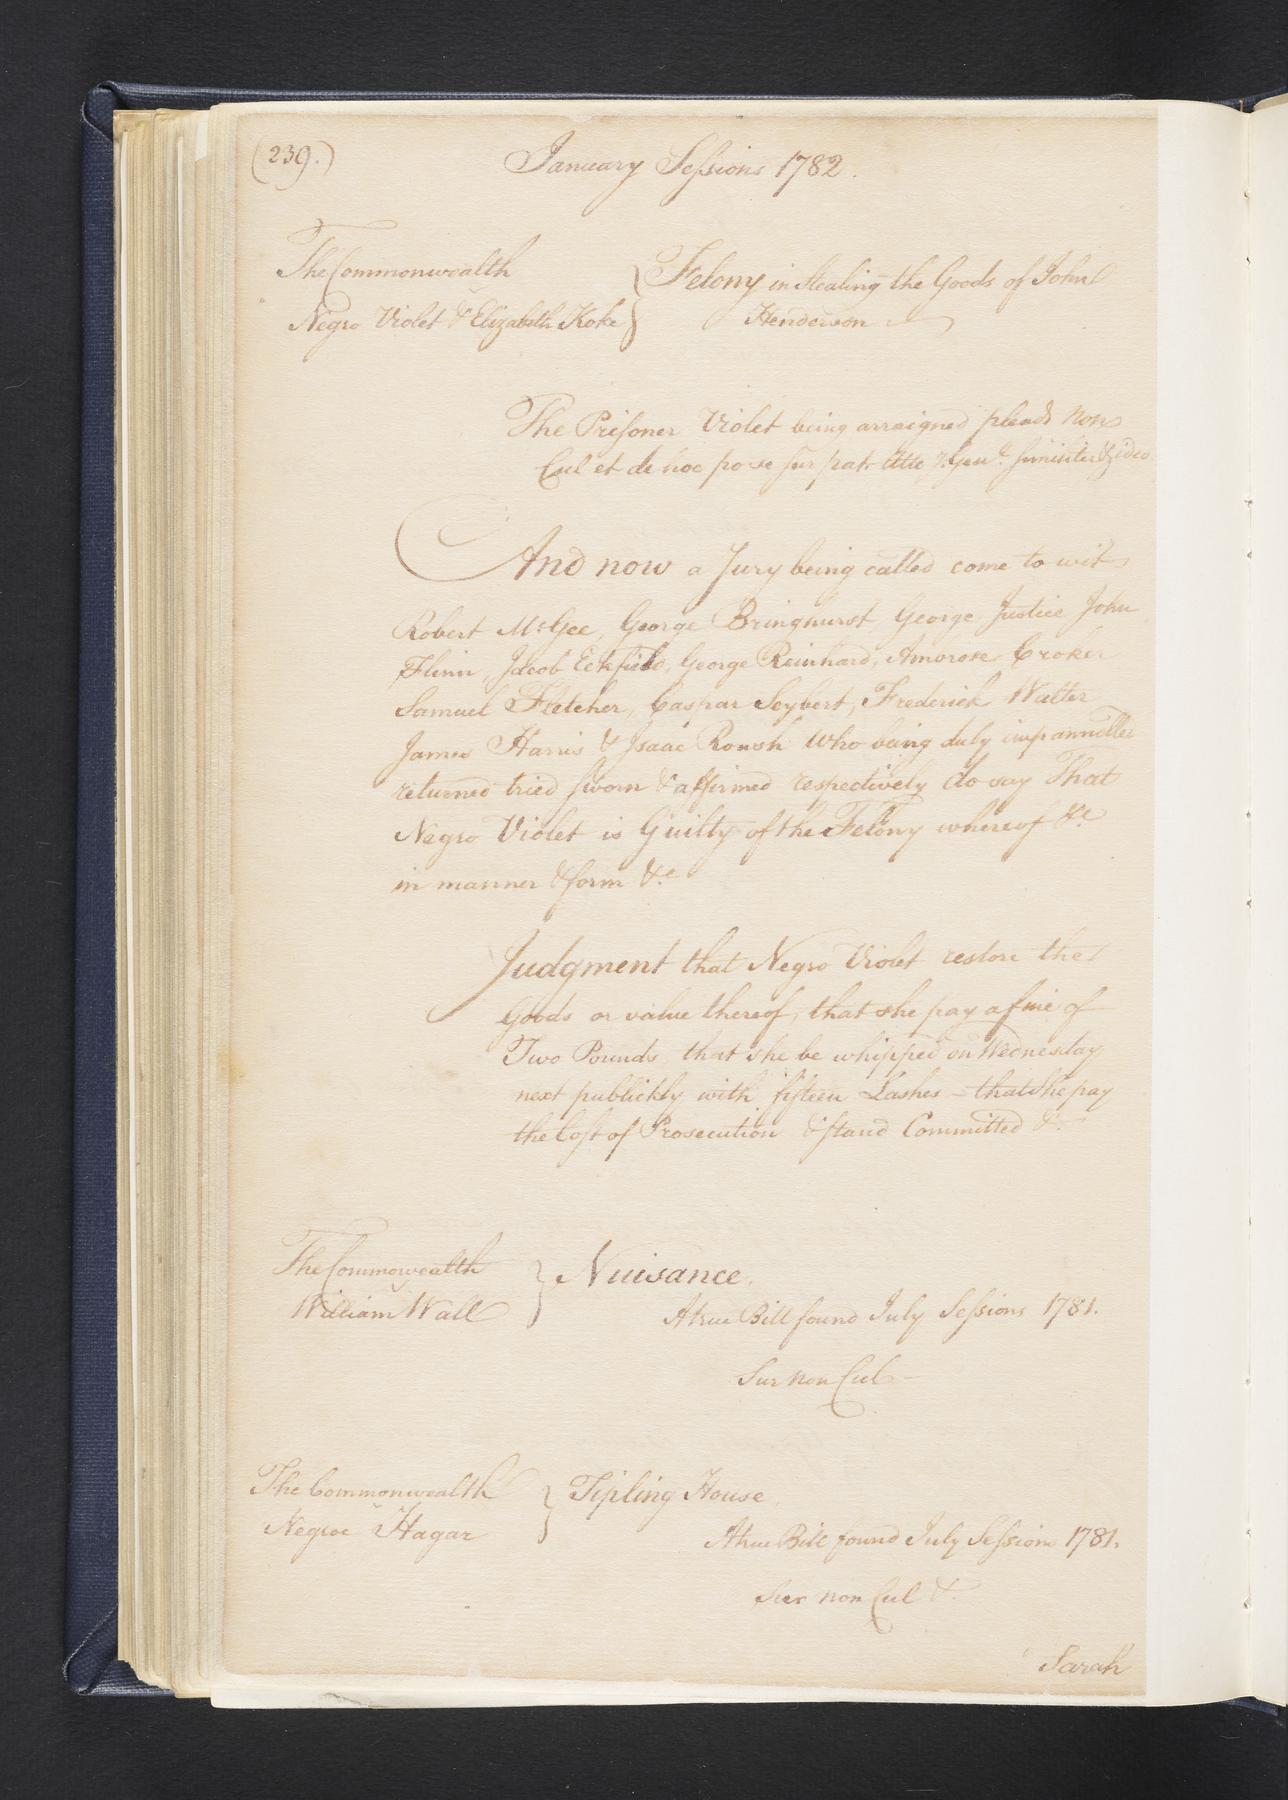 (239.)
January Sessions 1782.
The Commonwealth
v
Negro Violet & Elizabeth Koke
Felony in stealing the Goods of John
Henderson
The Prisoner Violet being arraigned pleads Non
Cul et de hoc po se sup pat Atto Genl similiter & ideo
And now a Jury being called come to wit
Robert McGee, George Bringhurst George Justice John
Flinn, Jacob Eckfield, George Reinhard, Ambrose Croker
Samuel Fletcher, Caspar Seybert, Frederick Walter
James Harris & Isaac Roush Who being duly impannelled
returned tried sworn & affirmed respectively do say That
Negro Violet is Guilty of the Felony whereof &c
in manner & form &c
Judgment that Negro Violet restore the
Goods or value thereof, that she pay a fine of
Two Pounds that she be whipped on Wednesday
next publickly with fifteen Lashes - that She pay
the Cost of Prosecution & stand Committed &c
The Commonwealth
v
William Wall
Nuisance.
A true Bill found July Sessions 1781.
Sur non Cul -
The Commonwealth
v
Negroe Hagar
Tipling House
A true Bill found July Sessions 1781.
Sur non Cul &c
Sarah